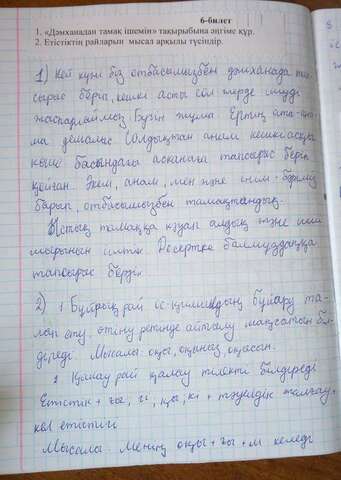 6-билет
1. «Дәмханадан тамақ ішемін» тақырыбына әңгіме құр.
2. Етістіктің райларын мысал арқылы түсіндір.
1) Кеш күні біз отбасымызбен дәмханада тап-
сырыс беріп, кешкі асты сол жерде ішуді
жоспарлаймыз. Бүгін жұма. Ертең ата-ана-
ма демалыс. Сондықтан анам кешкі асқа
көше басындағы асханаға тапсырыс беріп
қойған. Әкем, анам, мен және інім - бәріміз
барып, отбасымызбен тамақтандық.
Ыстық тамаққа қуырдақ және
сырынын ішті. Десертке балмұздаққа
тапсырыс берді.
2) 1 Бұйрық рай іс-қимылдың бұйыру та-
лап ету, өтіну ретінде айтылу мақсатын біл-
діреді. Мысалы: оқы, оқыңыз, оқысын.
2 Қалау рай қалау тілекті білдіреді
Етістік + ғы, гі, қы, кі + тәуелдік жалғау +
кел етістігі
Мысалы: Менің оқы + ғы + м келеді